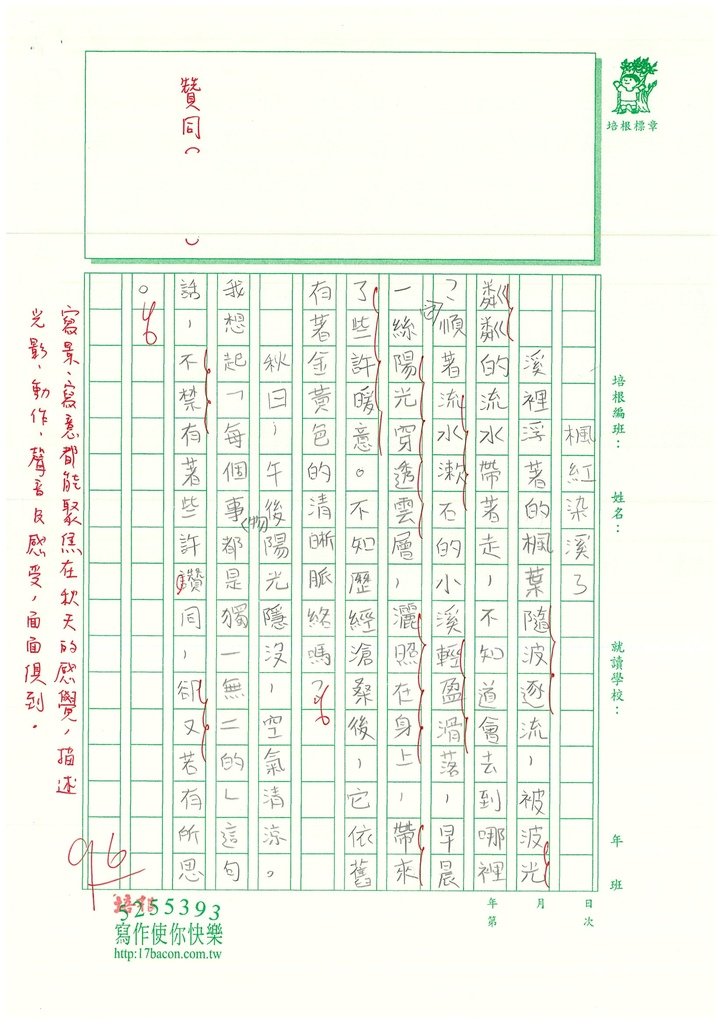 培根標章
贊同（　）
培根編班：　姓名：　就讀學校：　年　班
次　日　月　年　第
楓紅染溪了
溪裡浮著的楓葉隨波逐流，被波光
粼粼的流水帶著走，不知道會去到哪裡
？順著流水漱石的小溪輕盈滑落，早晨
一絲陽光穿透雲層，灑照在身上，帶來
了些許暖意。不知歷經滄桑後，它依舊
有著金黃色的清晰脈絡嗎？
秋日，午後陽光隱沒，空氣清涼。
我想起「每個事物都是獨一無二的」這句
話，不禁有著些許讚同，卻又若有所思
。
寫景、寫意都能聚焦在秋天的感覺，描述
光影、動作，聲音及感受，面面俱到。
96
培根
5255393
寫作使你快樂
http:17bacon.com.tw